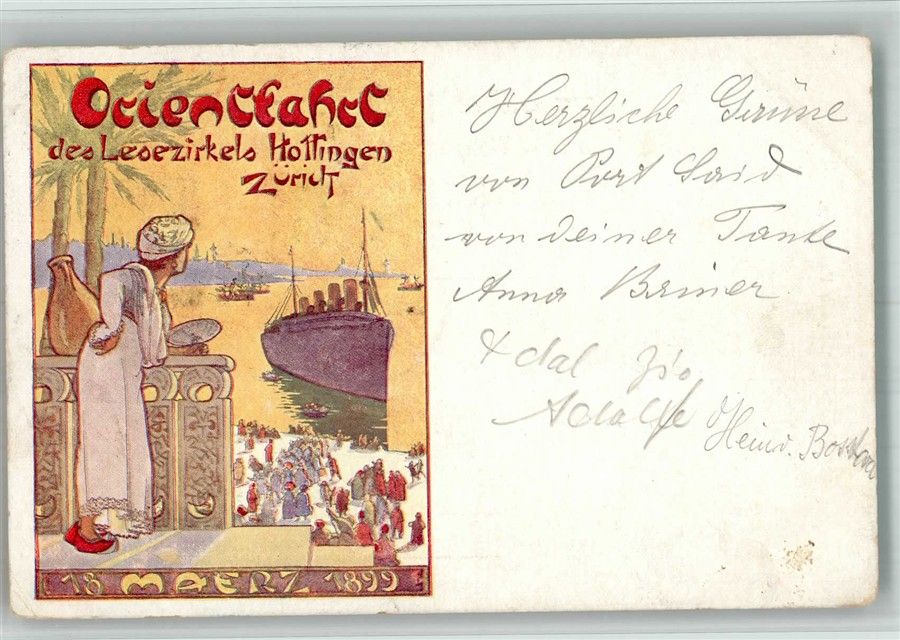 Orientfahrt
des Lesezirkels Hottingen
Zürich
18 MAERZ 1899
Herzliche Grüsse
von Port Said
von deiner Tante
Anna Briner
& dal zio
Adolfo
Heinr.